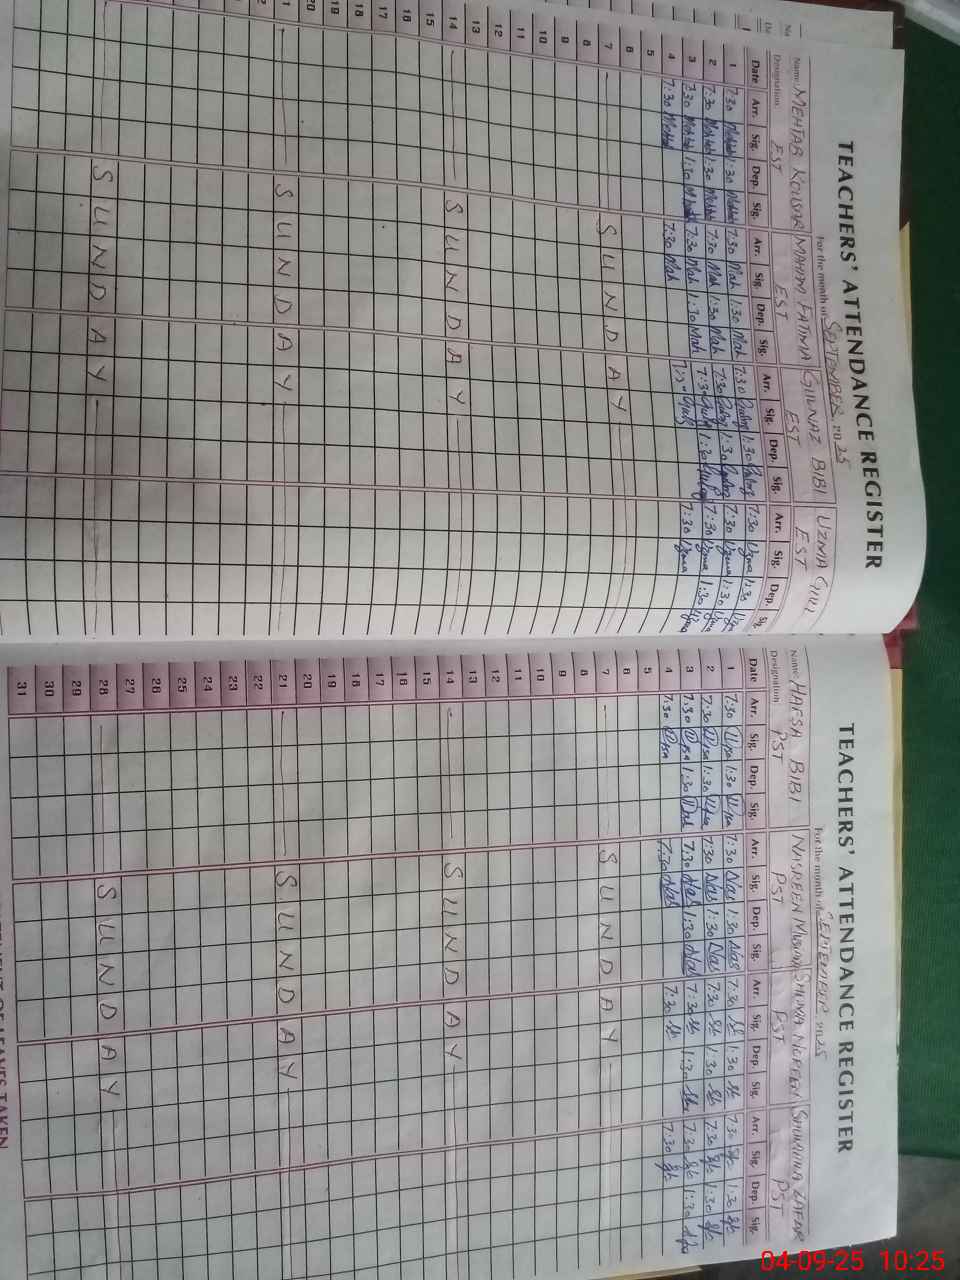 TEACHERS' ATTENDANCE REGISTER
For the month of SEPTEMBER 2025
Name: MEHTAB KOUSAR MAHIM FATIMA GULNAZ BIBI UZMA GULL
Designation: EST EST EST EST
Date Arr. Sig. Dep. Sig. Arr. Sig. Dep. Sig. Arr. Sig. Dep. Sig. Arr. Sig. Dep. Sig.
1 7:30 1:30 7:30 Mah 1:30 Mah 7:30 1:30 7:30 Uzma 1:30
2 7:30 1:30 7:30 Mah 1:30 Mah 7:30 1:30 7:30 Uzma 1:30
3 7:30 1:30 7:30 Mah 1:30 Mah 7:30 1:30 7:30 Uzma 1:30
4 7:30 7:30 Mah 7:30 7:30 Uzma
5
6
7 SUNDAY
8
9
10
11
12
13
14 SUNDAY
15
16
17
18
19
20
1 SUNDAY
SUNDAY
TEACHERS' ATTENDANCE REGISTER
For the month of SEPTEMBER 2025
Name: HAFSA BIBI NASREEN SHUMAILA ZAFAR
Designation: PST PST PST PST
Date Arr. Sig. Dep. Sig. Arr. Sig. Dep. Sig. Arr. Sig. Dep. Sig. Arr. Sig. Dep. Sig.
1 7:30 1:30 7:30 Nas 1:30 Nas 7:30 1:30 7:30 1:30
2 7:30 1:30 7:30 Nas 1:30 Nas 7:30 1:30 7:30 1:30
3 7:30 1:30 7:30 Nas 1:30 Nas 7:30 1:30 7:30 1:30
4 7:30 7:30 Nas 7:30 7:30
5
6
7 SUNDAY
8
9
10
11
12
13
14 SUNDAY
15
16
17
18
19
20
21 SUNDAY
22
23
24
25
26
27
28 SUNDAY
29
30
31
OF LEAVES TAKEN
04-09-25 10:25